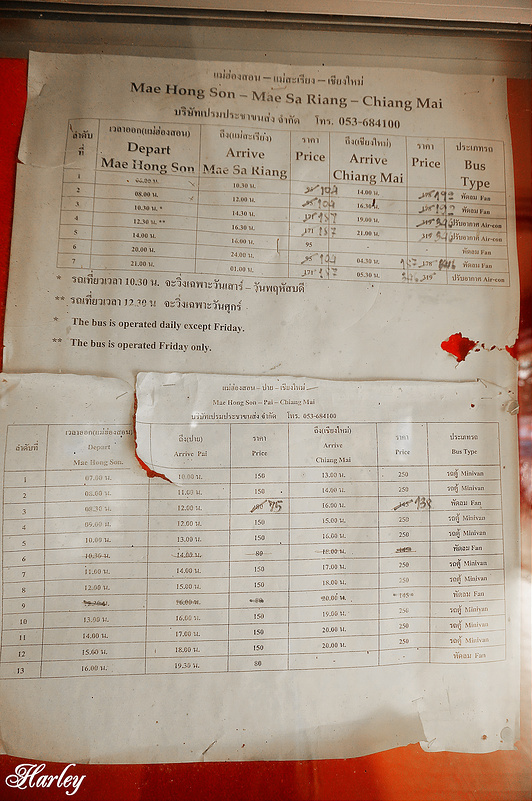 แม่ฮ่องสอน – แม่สะเรียง – เชียงใหม่
Mae Hong Son – Mae Sa Riang – Chiang Mai
บริษัทเปรมประชาขนส่ง จำกัด โทร. 053-684100
ลำดับที่ เวลาออก(แม่ฮ่องสอน) ถึง(แม่สะเรียง) ราคา ถึง(เชียงใหม่) ราคา ประเภทรถ
Depart Mae Hong Son Arrive Mae Sa Riang Price Arrive Chiang Mai Price Bus Type
1 06.00 น. 10.30 น. 104 14.00 น. 192 พัดลม Fan
2 08.00 น. 12.00 น. 104 16.30 น. 192 พัดลม Fan
3 10.30 น. * 14.30 น. 187 19.00 น. 346 ปรับอากาศ Air-con
4 12.30 น. ** 16.30 น. 171 187 21.00 น. 319 346 ปรับอากาศ Air-con
5 14.00 น. 18.00 น. 95 - - พัดลม Fan
6 20.00 น. 24.00 น. 95 104 04.30 น. 178 พัดลม Fan
7 21.00 น. 01.00 น. 171 187 05.30 น. 346 319 ปรับอากาศ Air-con
* รถเที่ยวเวลา 10.30 น. จะวิ่งเฉพาะวันเสาร์ – วันพฤหัสบดี
** รถเที่ยวเวลา 12.30 น จะวิ่งเฉพาะวันศุกร์
* The bus is operated daily except Friday.
** The bus is operated Friday only.
แม่ฮ่องสอน – ปาย – เชียงใหม่
Mae Hong Son – Pai – Chiang Mai
บริษัทเปรมประชาขนส่ง จำกัด โทร. 053-684100
ลำดับที่ เวลาออก(แม่ฮ่องสอน) ถึง(ปาย) ราคา ถึง(เชียงใหม่) ราคา ประเภทรถ
Depart Mae Hong Son. Arrive Pai Price Arrive Chiang Mai Price Bus Type
1 07.00 น. 10.00 น. 150 13.00 น. 250 รถตู้ Minivan
2 08.00 น. 11.00 น. 150 14.00 น. 250 รถตู้ Minivan
3 08.30 น. 12.00 น. 80 75 16.00 น. 145 138 พัดลม Fan
4 09.00 น. 12.00 น. 150 15.00 น. 250 รถตู้ Minivan
5 10.00 น. 13.00 น. 150 16.00 น. 250 รถตู้ Minivan
6 10.30 น. 14.00 น. 80 18.00 น. 145 พัดลม Fan
7 11.00 น. 14.00 น. 150 17.00 น. 250 รถตู้ Minivan
8 12.00 น. 15.00 น. 150 18.00 น. 250 รถตู้ Minivan
9 12.30 น. 16.00 น. 80 20.00 น. 145 พัดลม Fan
10 13.00 น. 16.00 น. 150 19.00 น. 250 รถตู้ Minivan
11 14.00 น. 17.00 น. 150 20.00 น. 250 รถตู้ Minivan
12 15.00 น. 18.00 น. 150 20.00 น. 250 รถตู้ Minivan
13 16.00 น. 19.30 น. 80 - - พัดลม Fan
Harley